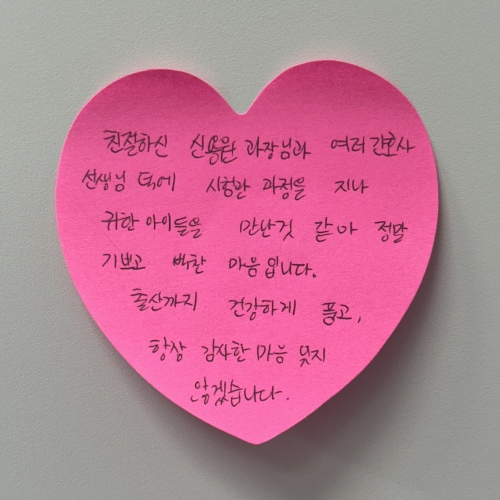 친절하신 신용원 과장님과 여러 간호사
선생님 덕에 시험관 과정을 지나
귀한 아이들을 만난것 같아 정말
기쁘고 벅찬 마음입니다.
출산까지 건강하게 품고,
항상 감사한 마음 잊지
않겠습니다.